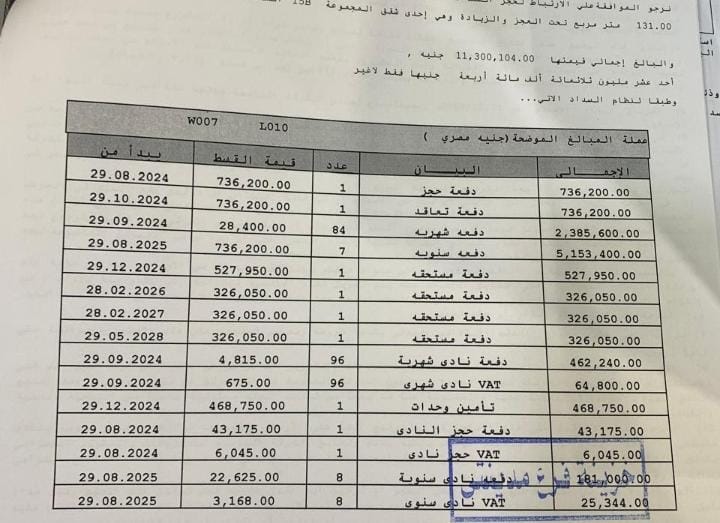 نرجو الموافقة على الارتباط لحجز
131.00 متر مربع تحت العجز والزيادة وهي إحدى شقق المجموعة 15B
والبالغ إجمالي قيمتها 11,300,104.00 جنيه ,
أحد عشر مليون ثلاثمائة ألف مائة أربعة جنيها فقط لاغير
وطبقا لنظام السداد الاتي...
W007 L010
عملة المبالغ الموضحة(جنيه مصري )
الإجمالى البيان عدد قيمة القسط يبدأ من
736,200.00 دفعة حجز 1 736,200.00 29.08.2024
736,200.00 دفعة تعاقد 1 736,200.00 29.10.2024
2,385,600.00 دفعه شهريه 84 28,400.00 29.09.2024
5,153,400.00 دفعه سنويه 7 736,200.00 29.08.2025
527,950.00 دفعة مستحقه 1 527,950.00 29.12.2024
326,050.00 دفعة مستحقه 1 326,050.00 28.02.2026
326,050.00 دفعة مستحقه 1 326,050.00 28.02.2027
326,050.00 دفعة مستحقه 1 326,050.00 29.05.2028
462,240.00 دفعة نادى شهرية 96 4,815.00 29.09.2024
64,800.00 VAT نادى شهرى 96 675.00 29.09.2024
468,750.00 تأمين وحدات 1 468,750.00 29.12.2024
43,175.00 دفعة حجز النادى 1 43,175.00 29.08.2024
6,045.00 VAT حجز نادى 1 6,045.00 29.08.2024
181,000.00 دفعه نادى سنوية 8 22,625.00 29.08.2025
25,344.00 VAT نادى سنوى 8 3,168.00 29.08.2025
خزينة فرع مدينتى